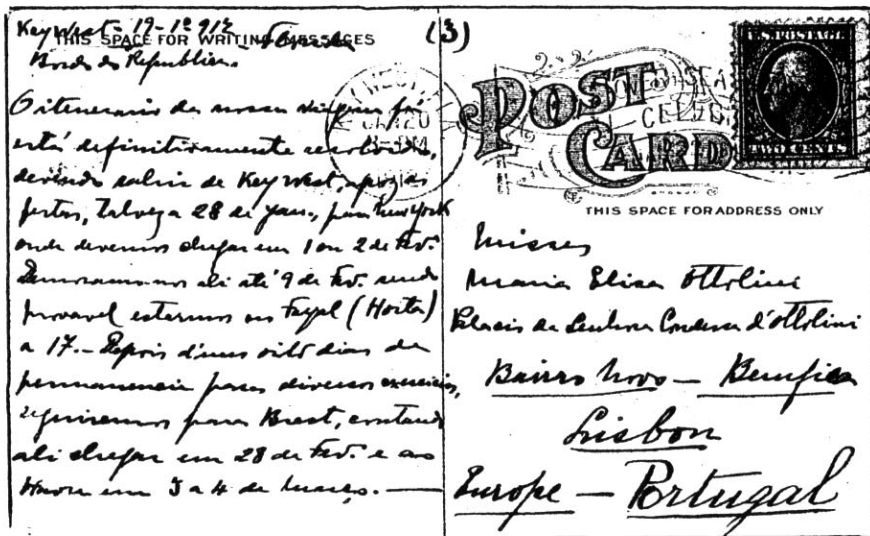 Key West - 19-1º 912
THIS SPACE FOR WRITING MESSAGES
Bordo do Republica.
O itenerario da nossa viagem já
está definitivamente resolvido,
devendo sahir de Key West, apoz as
festas, talvez a 28 de jan., para New York
onde devemos chegar em 1 ou 2 de Fev.º
Demoramo-nos ali até 9 de Fev. sendo
provavel estarmos no Fayal (Horta)
a 17. - Depois d'uns oito dias de
permanencia para diversos exercicios,
seguiremos para Brest, contando
ali chegar em 28 de Fev.º e ao
Havre em 3 a 4 de Março. —
(3)
POST
CARD
U.S. POSTAGE
TWO CENTS
THIS SPACE FOR ADDRESS ONLY
Misses
Maria Elisa Ottolini
Palacio da Senhora Condessa d'Ottolini
Bairro Novo — Bemfica
Lisbon
Europe — Portugal